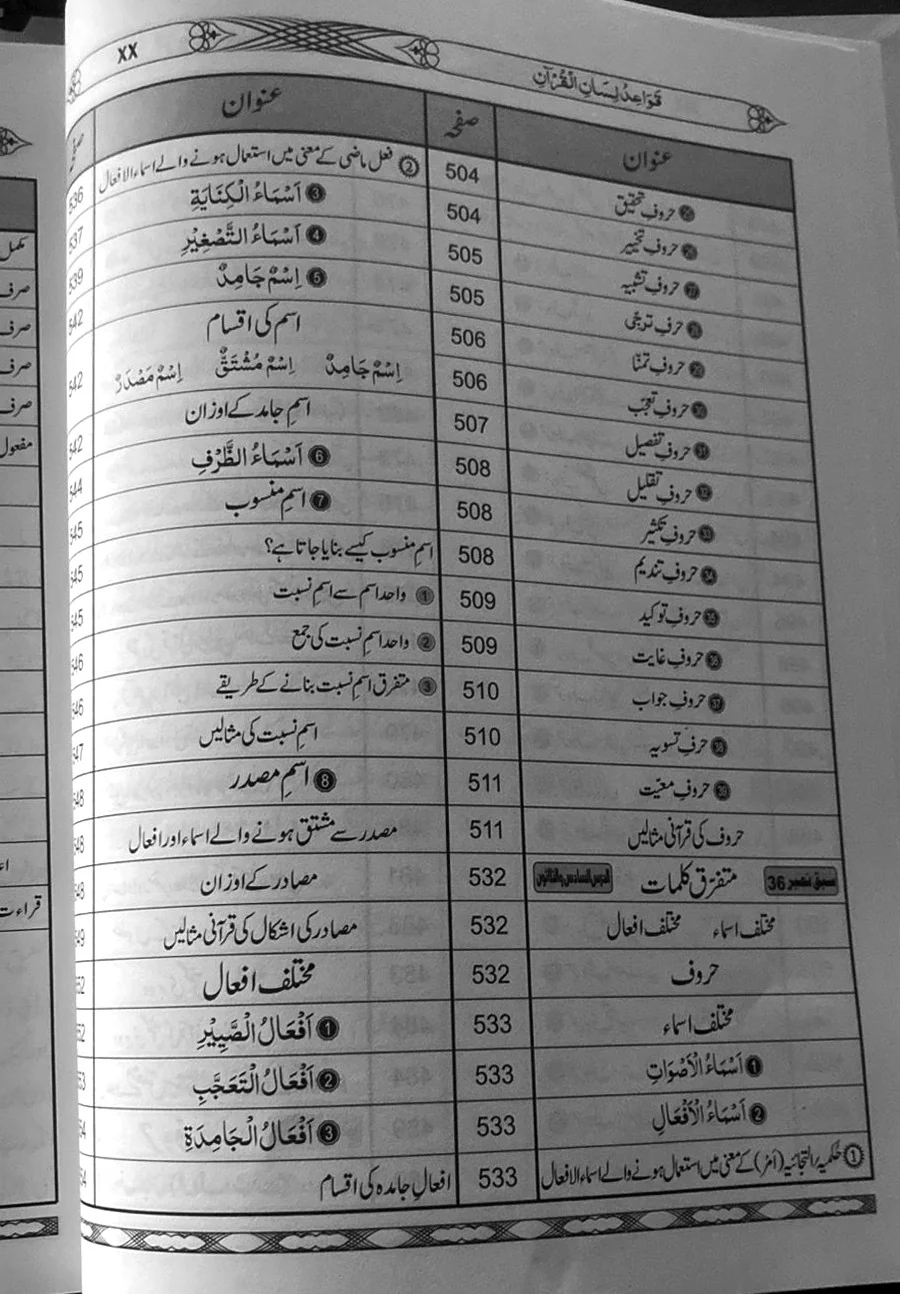 XX
قَوَاعِدُ لِسَانِ الْقُرْآنِ
عنوان صفحہ
حروفِ تحقیق 504
حروفِ تخییر 504
حروفِ تشبیہ 505
حرفِ ترجّی 505
حروفِ تمنّا 506
حروفِ تعجّب 506
31 حروفِ تفصیل 507
32 حروفِ تقلیل 508
33 حروفِ تکثیر 508
34 حروفِ تندیم 508
35 حروفِ توکید 509
36 حروفِ غایت 509
37 حروفِ جواب 510
38 حرفِ تسویہ 510
39 حروفِ معیّت 511
حروف کی قرآنی مثالیں 511
سبق نمبر 36 متفرّق کلمات الدرس السادس والثلاثون 532
مختلف اسماء مختلف افعال 532
حروف 532
مختلف اسماء 533
1 اَسْمَاءُ الْاَصْوَاتِ 533
2 اَسْمَاءُ الْاَفْعَالِ 533
1 (اَمر) کے معنی میں استعمال ہونے والے اسماء الافعال 533
عنوان
2 فعل ماضی کے معنی میں استعمال ہونے والے اسماء الافعال 536
3 اَسْمَاءُ الْكِنَايَةِ 537
4 اَسْمَاءُ التَّصْغِيْرِ 539
5 اِسْمٌ جَامِدٌ 542
اسم کی اقسام
اِسْمٌ جَامِدٌ اِسْمٌ مُشْتَقٌّ اِسْمٌ مَصْدَرٌ 542
اسمِ جامد کے اوزان 542
6 اَسْمَاءُ الظَّرْفِ 544
7 اسمِ منسوب 545
اسمِ منسوب کیسے بنایا جاتا ہے؟ 545
1 واحد اسم سے اسمِ نسبت 545
2 واحد اسمِ نسبت کی جمع 546
3 متفرق اسمِ نسبت بنانے کے طریقے 546
اسمِ نسبت کی مثالیں 547
8 اسمِ مصدر 548
مصدر سے مشتق ہونے والے اسماء اور افعال 548
مصادر کے اوزان 48
مصادر کی اشکال کی قرآنی مثالیں 49
مختلف افعال 52
1 اَفْعَالُ الصَّيِيْرِ 52
2 اَفْعَالُ التَّعَجُّبِ 53
3 اَفْعَالُ الْجَامِدَةِ 54
افعالِ جامدہ کی اقسام 54
مکمل
صرف
صرف
صرف
صرف
مفعول
قراءت